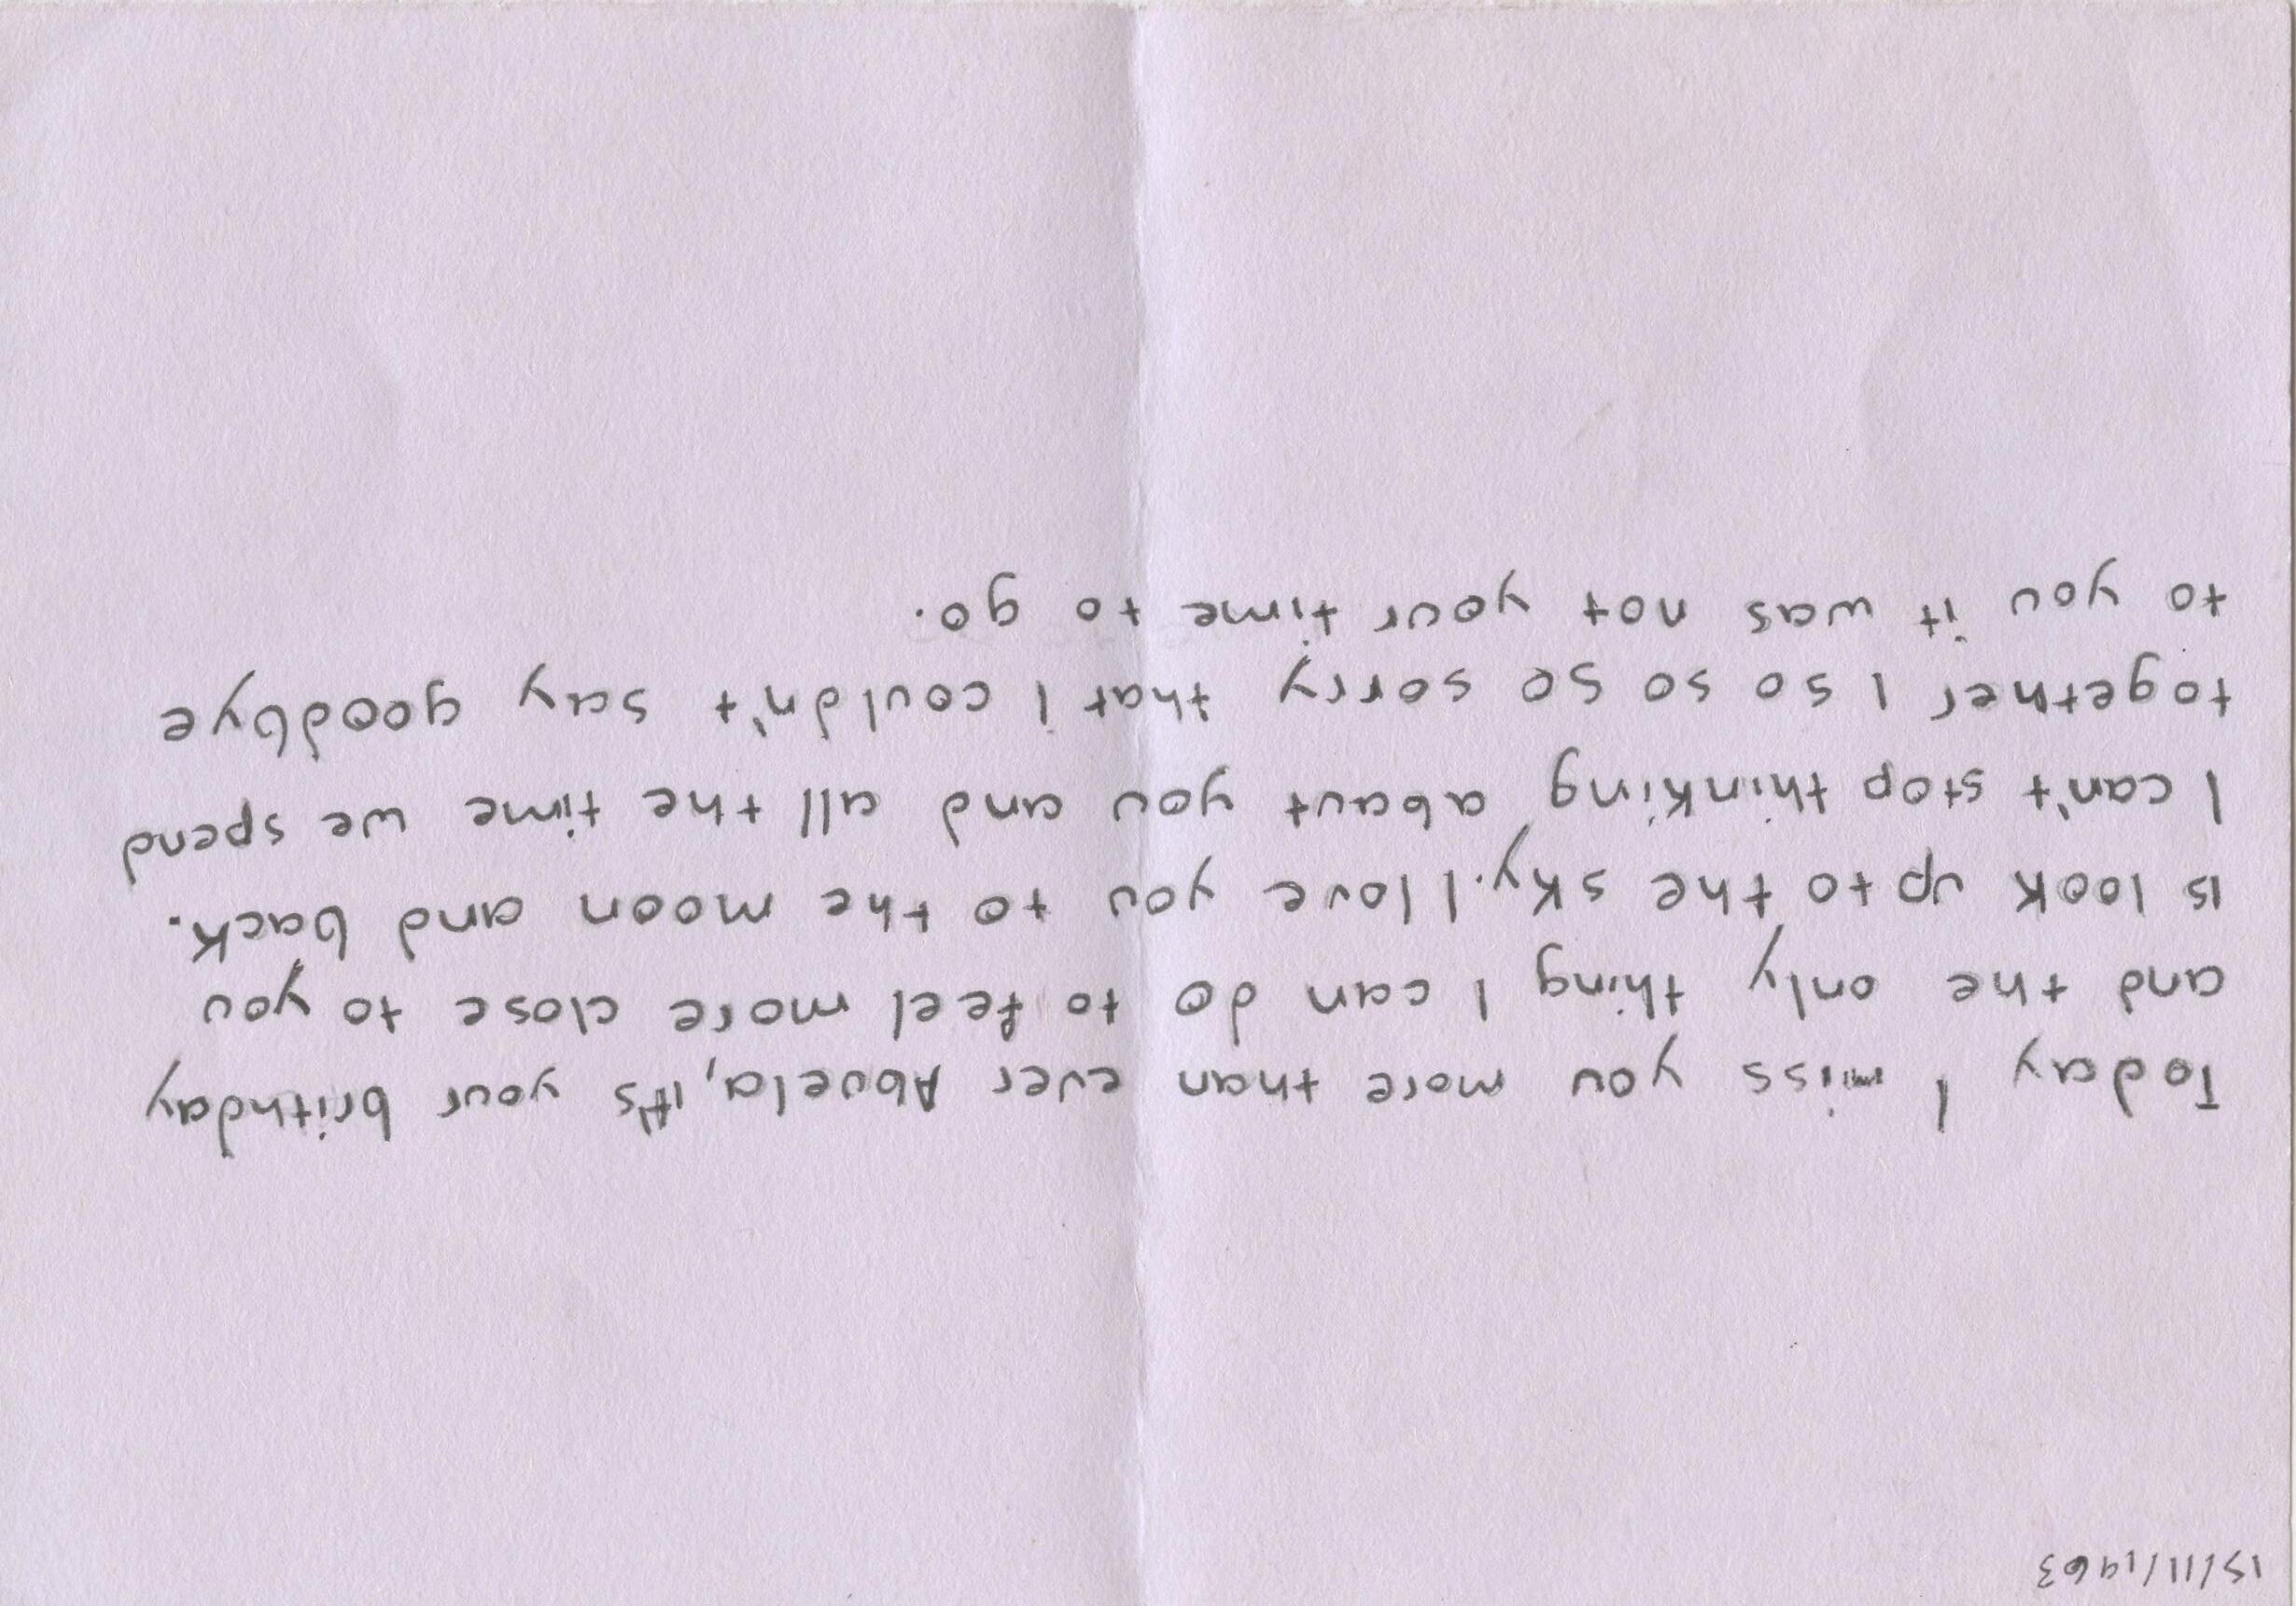 15/11/1963
Today I miss you more than ever Abuela, it's your brithday
and the only thing I can do to feel more close to you
is look up to the sky. I love you to the moon and back.
I can't stop thinking about you and all the time we spend
together I so so so sorry that i couldn't say goodbye
to you it was not your time to go.